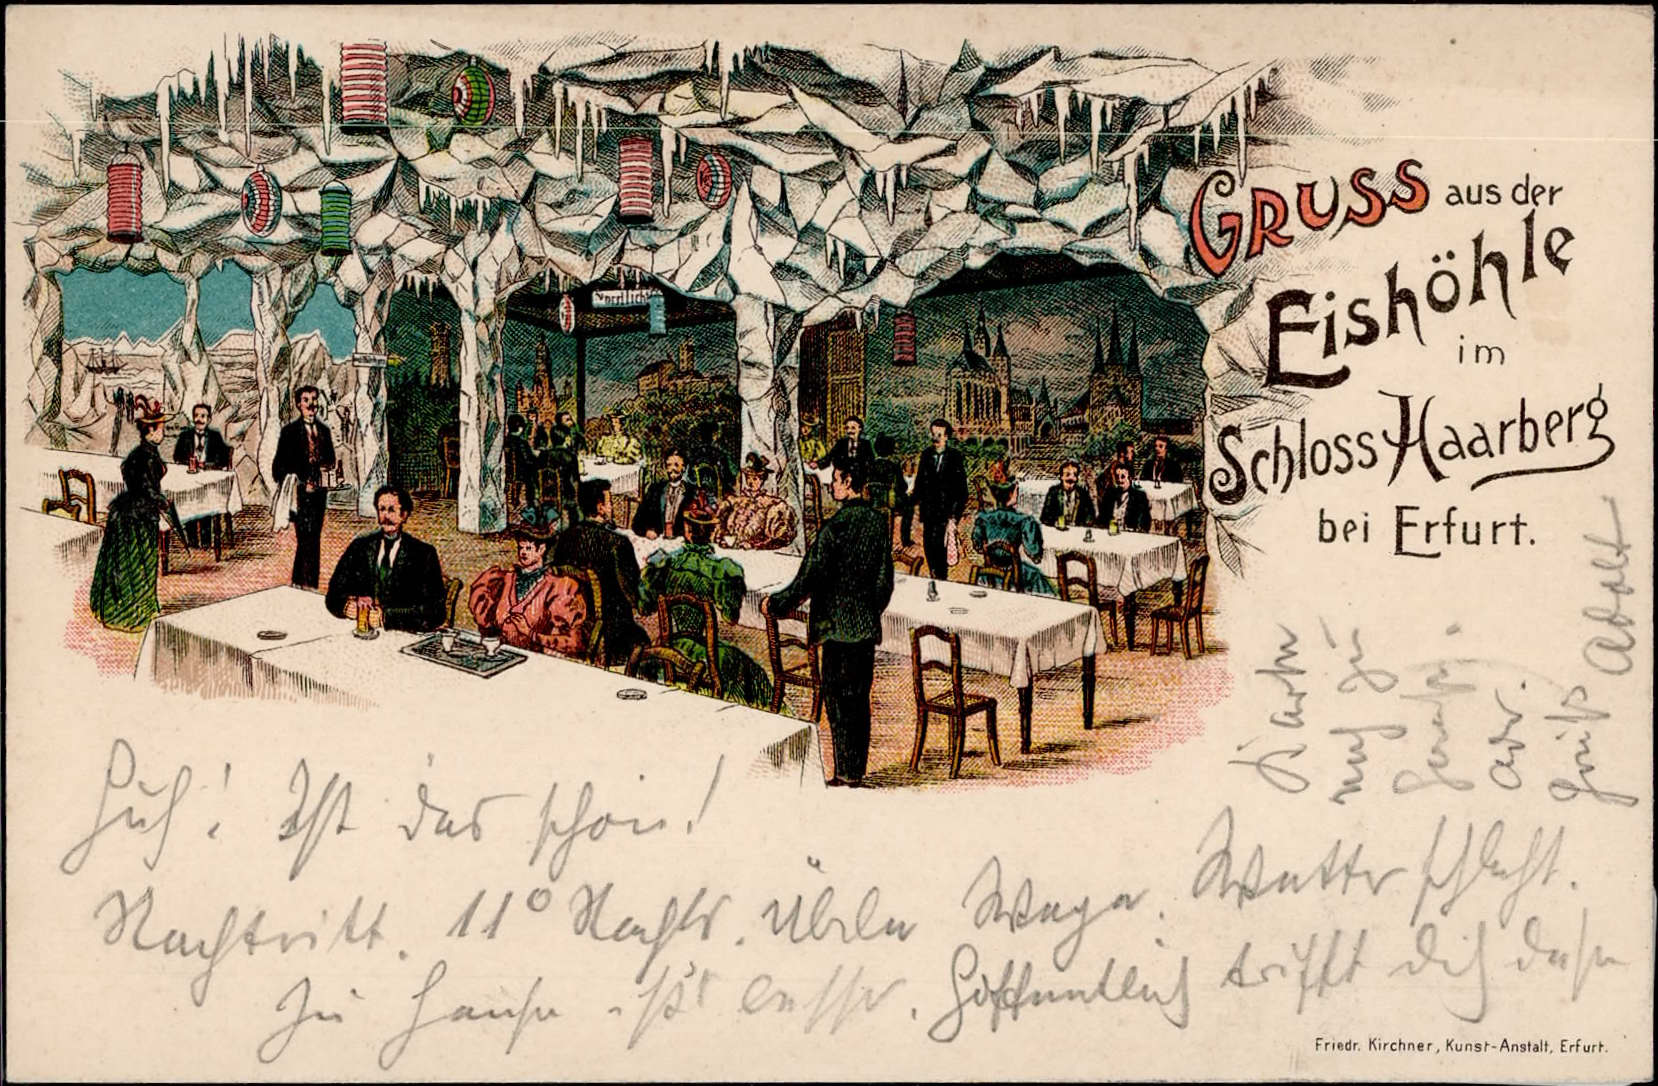 GRUSS aus der
Eishöhle
im
Schloss Haarberg
bei Erfurt.
Huh! Ist das schön!
Nachtritt. 11° Nachts. Übele Wege. Wetter schlecht.
Zu Hause ist's besser. Hoffentlich trifft dich diese
Karte
zu
Gruß Adolf
Friedr. Kirchner, Kunst-Anstalt, Erfurt.